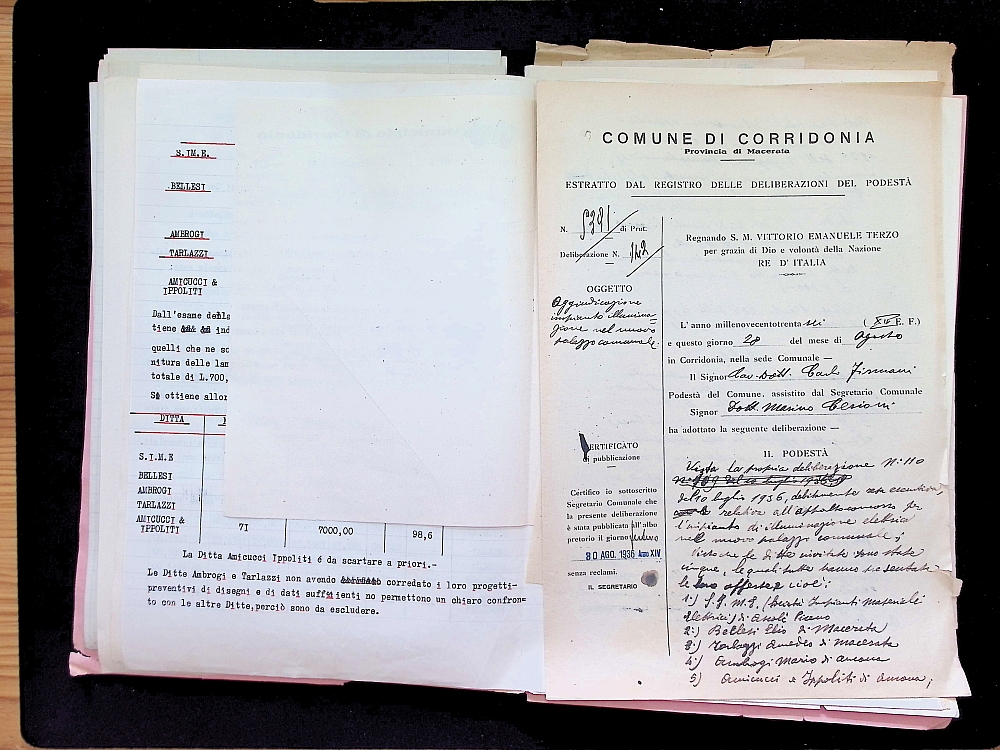 S.IM.E.
BELLESI
AMBROGI
TARLAZZI
AMICUCCI &
IPPOLITI
Dall'esame
tiene ind
quelli che ne sc
nitura delle lam
totale di L.700,
Si ottiene allor
DITTA
S.I.M.E
BELLESI
AMBROGI
TARLAZZI
AMICUCCI &
IPPOLITI 71 7000,00 98,6
La Ditta Amicucci Ippoliti é da scartare a priori.-
Le Ditte Ambrogi e Tarlazzi non avendo corredato i loro progetti-
preventivi di disegni e di dati sufficienti no permettono un chiaro confron-
to con le altre Ditte,perciò sono da escludere.
COMUNE DI CORRIDONIA
Provincia di Macerata
ESTRATTO DAL REGISTRO DELLE DELIBERAZIONI DEL PODESTÀ
N. 5391 di Prot.
Deliberazione N. 142
OGGETTO
Aggiudicazione
impianto illumina=
zione nel nuovo
palazzo comunale.
CERTIFICATO
di pubblicazione
Certifico io sottoscritto
Segretario Comunale che
la presente deliberazione
è stata pubblicata all'albo
pretorio il giorno
30 AGO. 1936 Anno XIV
senza reclami.
IL SEGRETARIO
Regnando S. M. VITTORIO EMANUELE TERZO
per grazia di Dio e volontà della Nazione
RE D' ITALIA
L' anno millenovecentotrenta sei ( XIV E. F.)
e questo giorno 28 del mese di Agosto
in Corridonia, nella sede Comunale —
Il Signor Cav. Dott. Carlo Firmani
Podestà del Comune, assistito dal Segretario Comunale
Signor Dott. Marino
ha adottato la seguente deliberazione —
IL PODESTÀ
Vista la propria deliberazione N: 110
del 10 luglio 1936, debitamente resa esecutiva,
relativa all'appalto concorso per
l'impianto di illuminazione elettrica
nel nuovo palazzo comunale;
Visto che le ditte invitate sono state
cinque, le quali tutte hanno presentato
le loro offerte e cioè:
1:) S.I.M.E. (Società Impianti Materiali
Elettrici) di Ascoli Piceno
2:) Bellesi Elio di Macerata
3:) Tarlazzi Amedeo di Macerata
4:) Ambrogi Mario di Ancona
5) Amicucci e Ippoliti di Ancona;